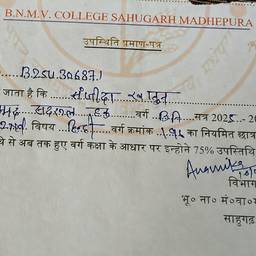 B.N.M.V. COLLEGE SAHUGARH MADHEPURA
उपस्थिति प्रमाण-पत्र
B25U30687.1
जाता है कि ...... संजीदा खातून
सदरूल हक ...... वर्ग .. BA ... सत्र 2025 .- 20
विषय .. हिन्दी .. वर्ग क्रमांक .. 196 का नियमित छात्र
से अब तक हुए वर्ग कक्षा के आधार पर इन्होंने 75% उपस्थिति
Anamika
विभाग
भू० ना० मं०
साहुगढ़